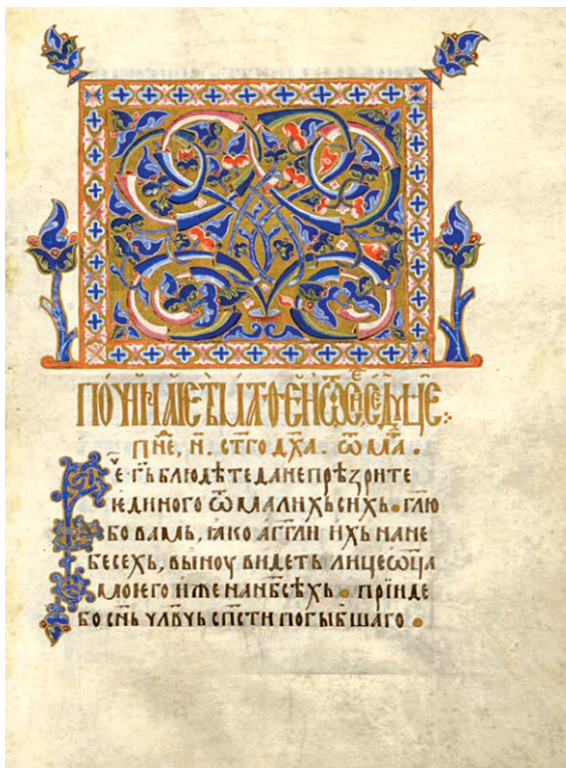 пн҃е, н҃. ст҃го дх҃а. ѿ ма҃.
Рⷱ҇е г҃ь блюдѣте да не прѣзрите
ѥдиного ѿ малихь сихь. гл҃ю
бо вамь, ꙗко агг҃ли ихь на не
бесехь, выноу видеть лице ѿц҃а
моѥго иже на нб҃сѣхь. прїиде
бо сн҃ь чл҃вчь сп҃сти погыбшаго.